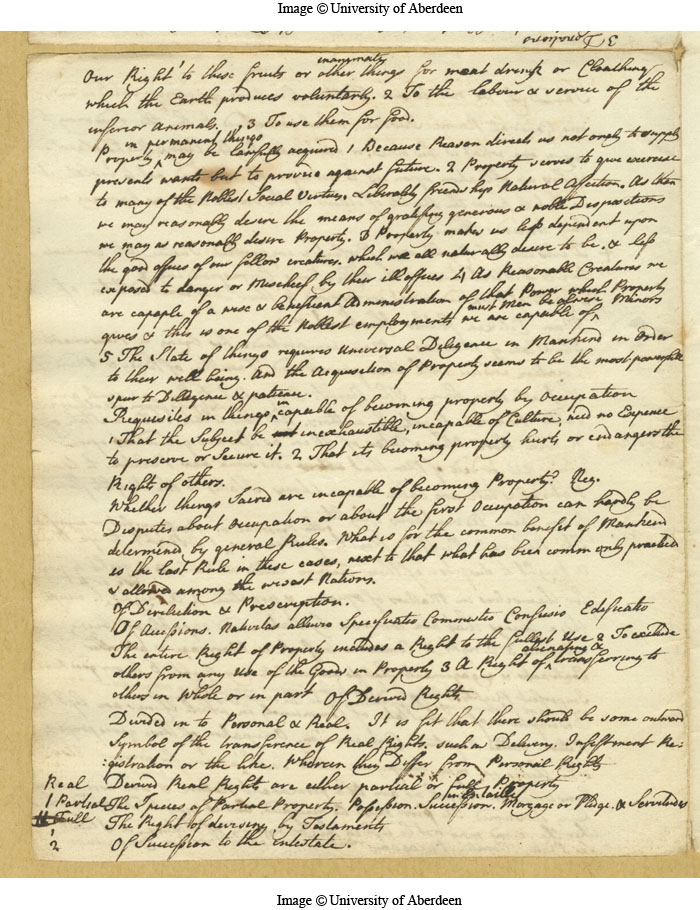 Image © University of Aberdeen
Our Right to these fruits or other inanymate things for meat drink or Cloathing
which the Earth produces voluntarly. 2 To the labour & service of the
inferior animals. 3 To use them for food.
Property in permanent things may be lawfully acquired 1 Because Reason directs us not only to supply
presents wants but to provide against future. 2 Property serves to give exercise
to many of the Noblest Social Virtues. Liberality friendship Natural Affection. As then
we may reasonally desire the means of gratifying generous & noble Dispositions
we may as reasonally desire Property. 3 Property makes us less dependent upon
the good offices of our fellow creatures. which we all naturally desire to be. & less
exposed to danger or Mischief by their ill offices 4 As Reasonable Creatures we
are capaple of a wise & beneficent Administration of that Power which Property
gives & this is one of the Noblest employments we are capable of
5 The State of things requires Universal Deligence in Mankind in Order
to their well being. And the Acquisition of Property seems to be the most powerfull
spur to Dilligence & patience.
Requisites in things incapable of becoming property by Occupation
1 That the Subject be inexhaustible, incapable of Culture, need no Expence
to preserve or Secure it. 2 That its becoming property hurts or endangers the
Rights of others.
Whether things Sacred are incapable of becoming Property? Neg.
Disputes about Occupation or about the first Occupation can hardly be
determind by general Rules. What is for the common benefit of Mankind
is the last Rule in these cases, next to that what has been commonly practised
& allowed among the wisest Nations.
Of Direliction & Prescription.
Of Accessions. Nativitas alluvio Specificatio Commixtio Confusio Edificatio
The entire Right of Property includes a Right to the fullest Use 2 To exclude
others from any Use of the Goods in Property 3 A Right of alienating & transferring to
others in Whole or in part
Of Derived Rights
Divided in to Personal & Real. It is fit that there should be some outward
Symbol of the transference of Real Rights. such as Delivery. Infeftment Re-
:gistration or the like. Wherein they Differ from Personal Rights
Real Derived Real Rights are either partial or full Property
1 Partial The Species of Partial Property. Possession. Succession. Morgage or Pledge. & Servitudes
Full The Right of devising by Testaments
1
2 Of Succession to the intestate.
Image © University of Aberdeen